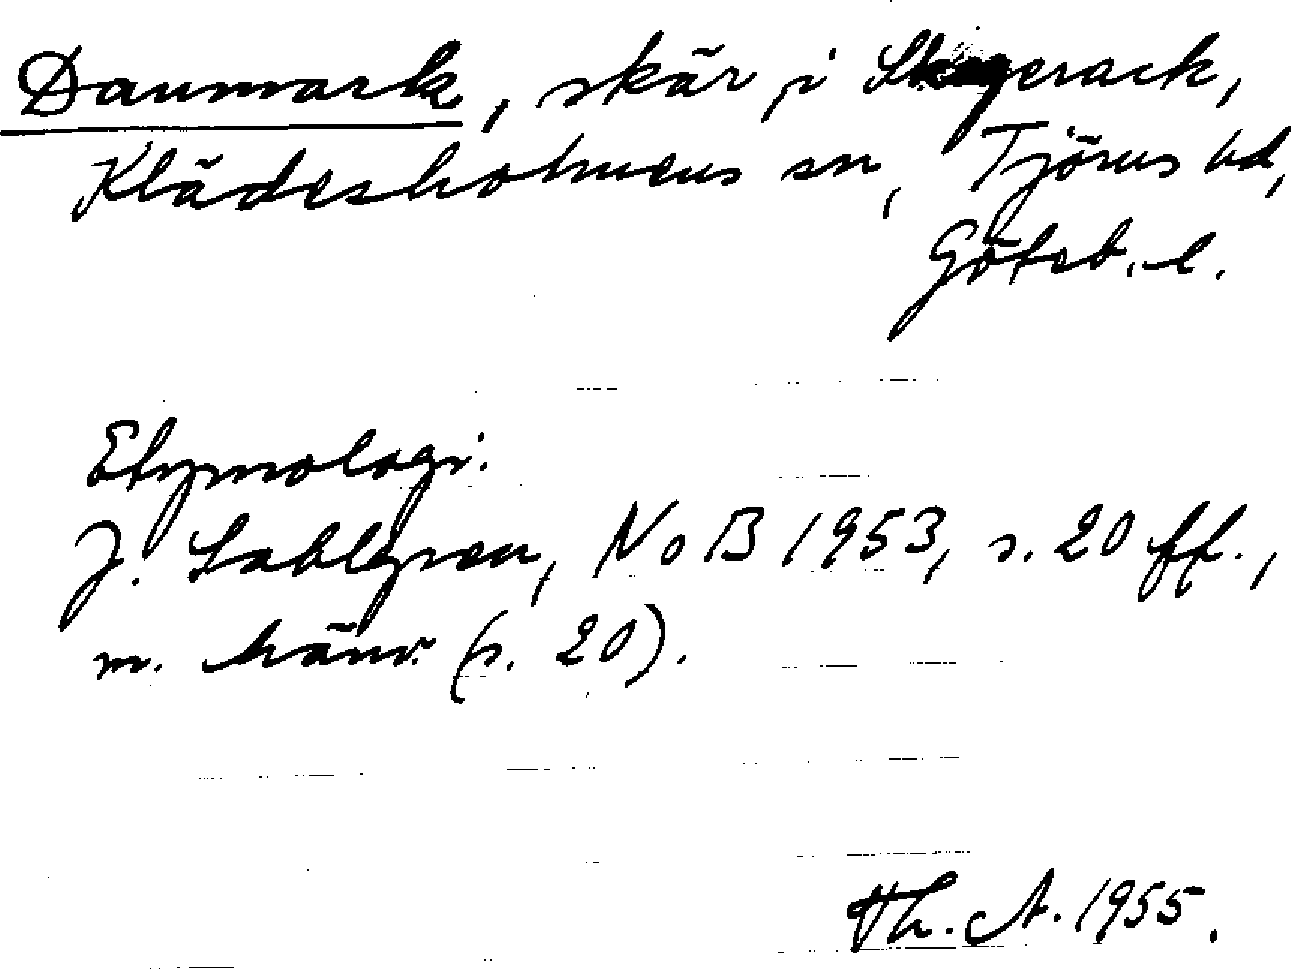 Danmark, skär i Skagerack,
Klädesholmens sn, Tjörns hd,
Göteb. l.
Etymologi.
J. Sahlgren, NoB 1953, s. 20 ff.,
m. hänv. (s. 20).
Th. A. 1955.